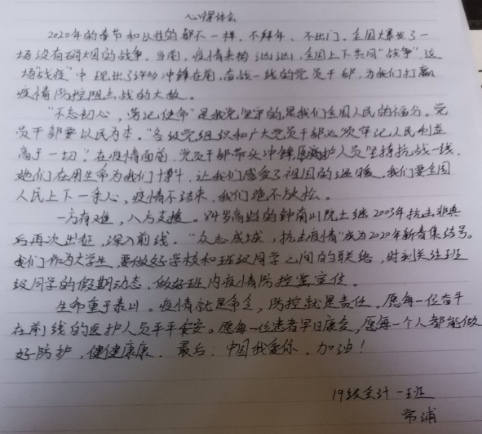 心得体会
2020年的春节和以往的都不一样,不拜年、不出门,全国爆发了一
场没有硝烟的战争。当前,疫情来势汹汹,全国上下共同"战争"这
场战役"中现出了许多冲锋在前,奋战一线的党员干部,为我们打赢
疫情防控阻击战的大教。
"不忘初心,牢记使命"是我党坚守的,是我们全国人民的福分。党
员干部要以民为本,"各级党组织和广大党员干部必须牢记人民利益
高于一切"在疫情面前,党员干部带头冲锋,医护人员坚持抗战一线,
她们在用生命为我们博斗,让我们感受了祖国的温暖。我们要全国
人民上下一条心,疫情不结束,我们绝不放松。
一方有难,八方支援。84岁高龄的钟南山院士继2003年抗击非典
后再次出征,深入前线。"众志成城,抗击疫情"成为2020年新春集结号。
我们作为大学生,要做好学校和班级同学之间的联络,时刻关注班
级同学的假期动态,做好班内疫情防控
生命重于泰山。疫情就是命令,防控就是责任。愿每一位奋斗
在前线的医护人员平平安安。愿每一位患者早日康复,愿每一个人都能做
好防护,健健康康。最后:中国我爱你,加油!
19级会计一班